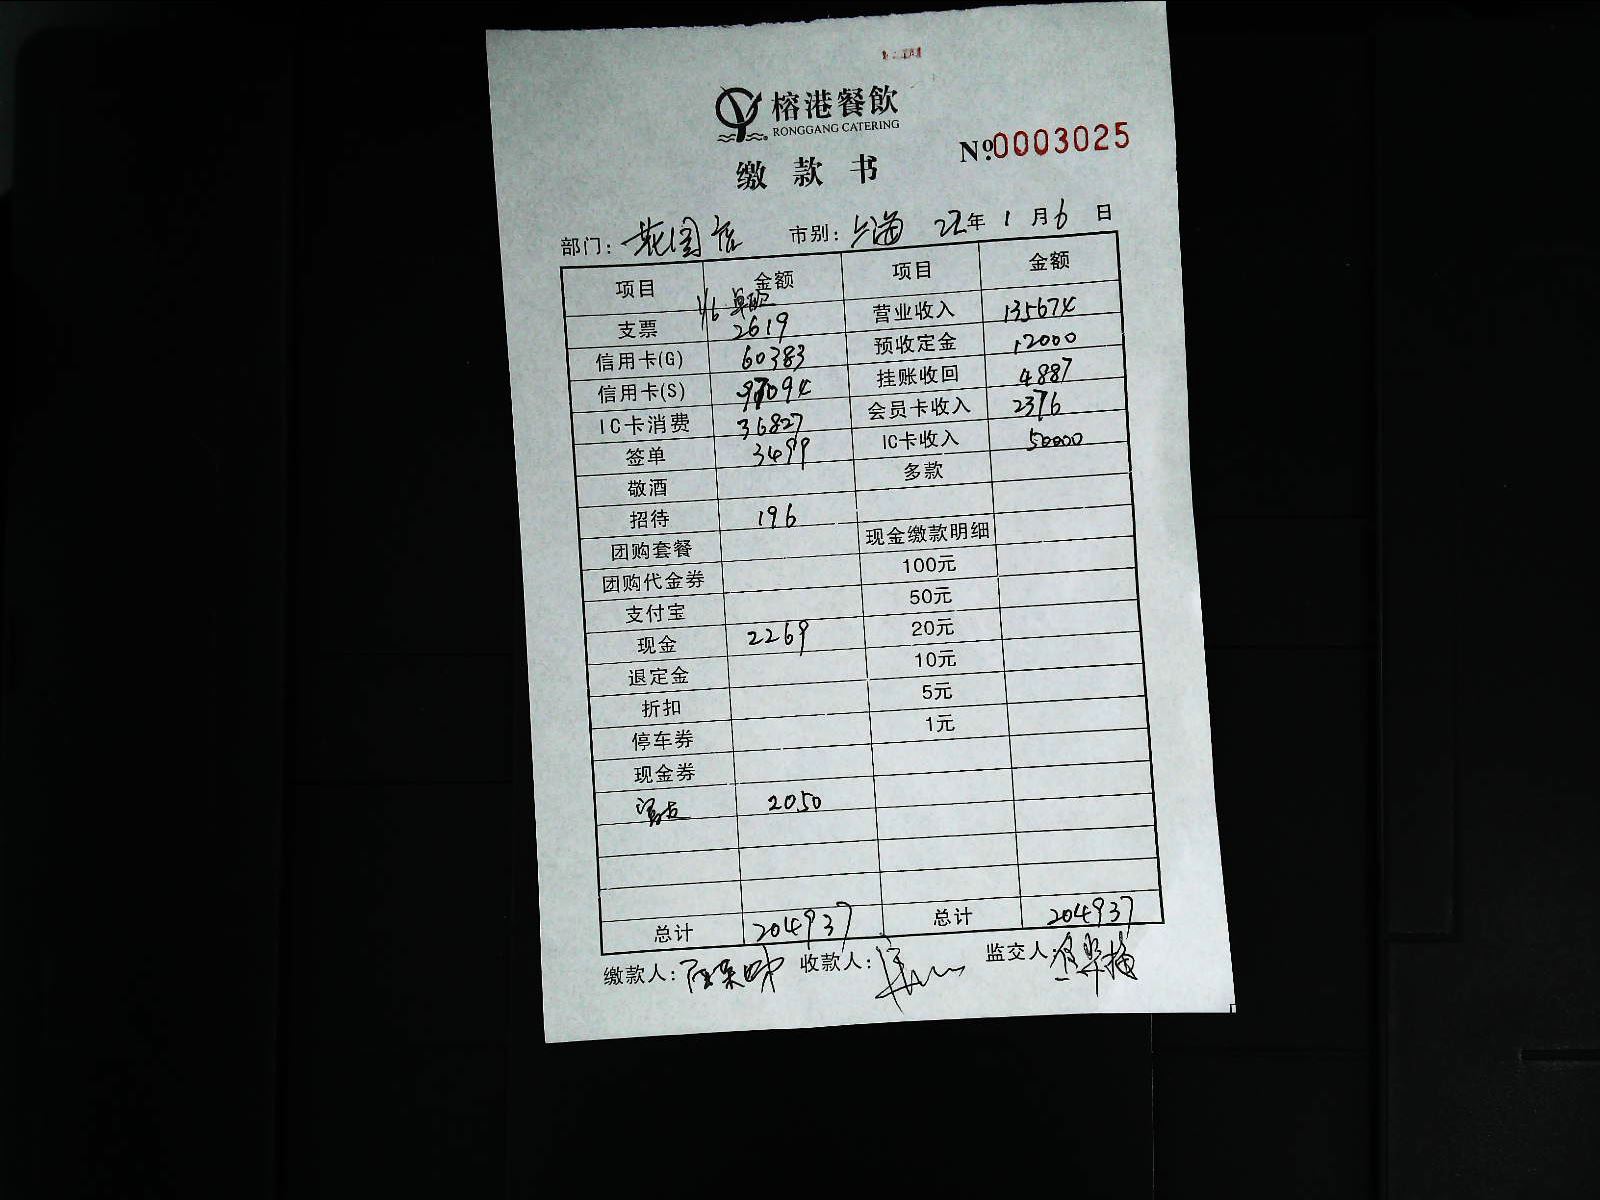 榕港餐飲
RONGGANG CATERING
缴款书
No.0003025
部门：花园店 市别：上海 22年 1 月 6 日
项目 金额 项目 金额
1/6
支票 2619 营业收入 135674
信用卡(G) 60383 预收定金 12000
信用卡(S) 97094 挂账收回 4887
IC卡消费 36827 会员卡收入 2376
签单 3499 IC卡收入 50000
敬酒 多款
招待 196
团购套餐 现金缴款明细
团购代金券 100元
支付宝 50元
现金 2269 20元
退定金 10元
折扣 5元
停车券 1元
现金券
2050
总计 204937 总计 204937
缴款人： 收款人： 监交人：